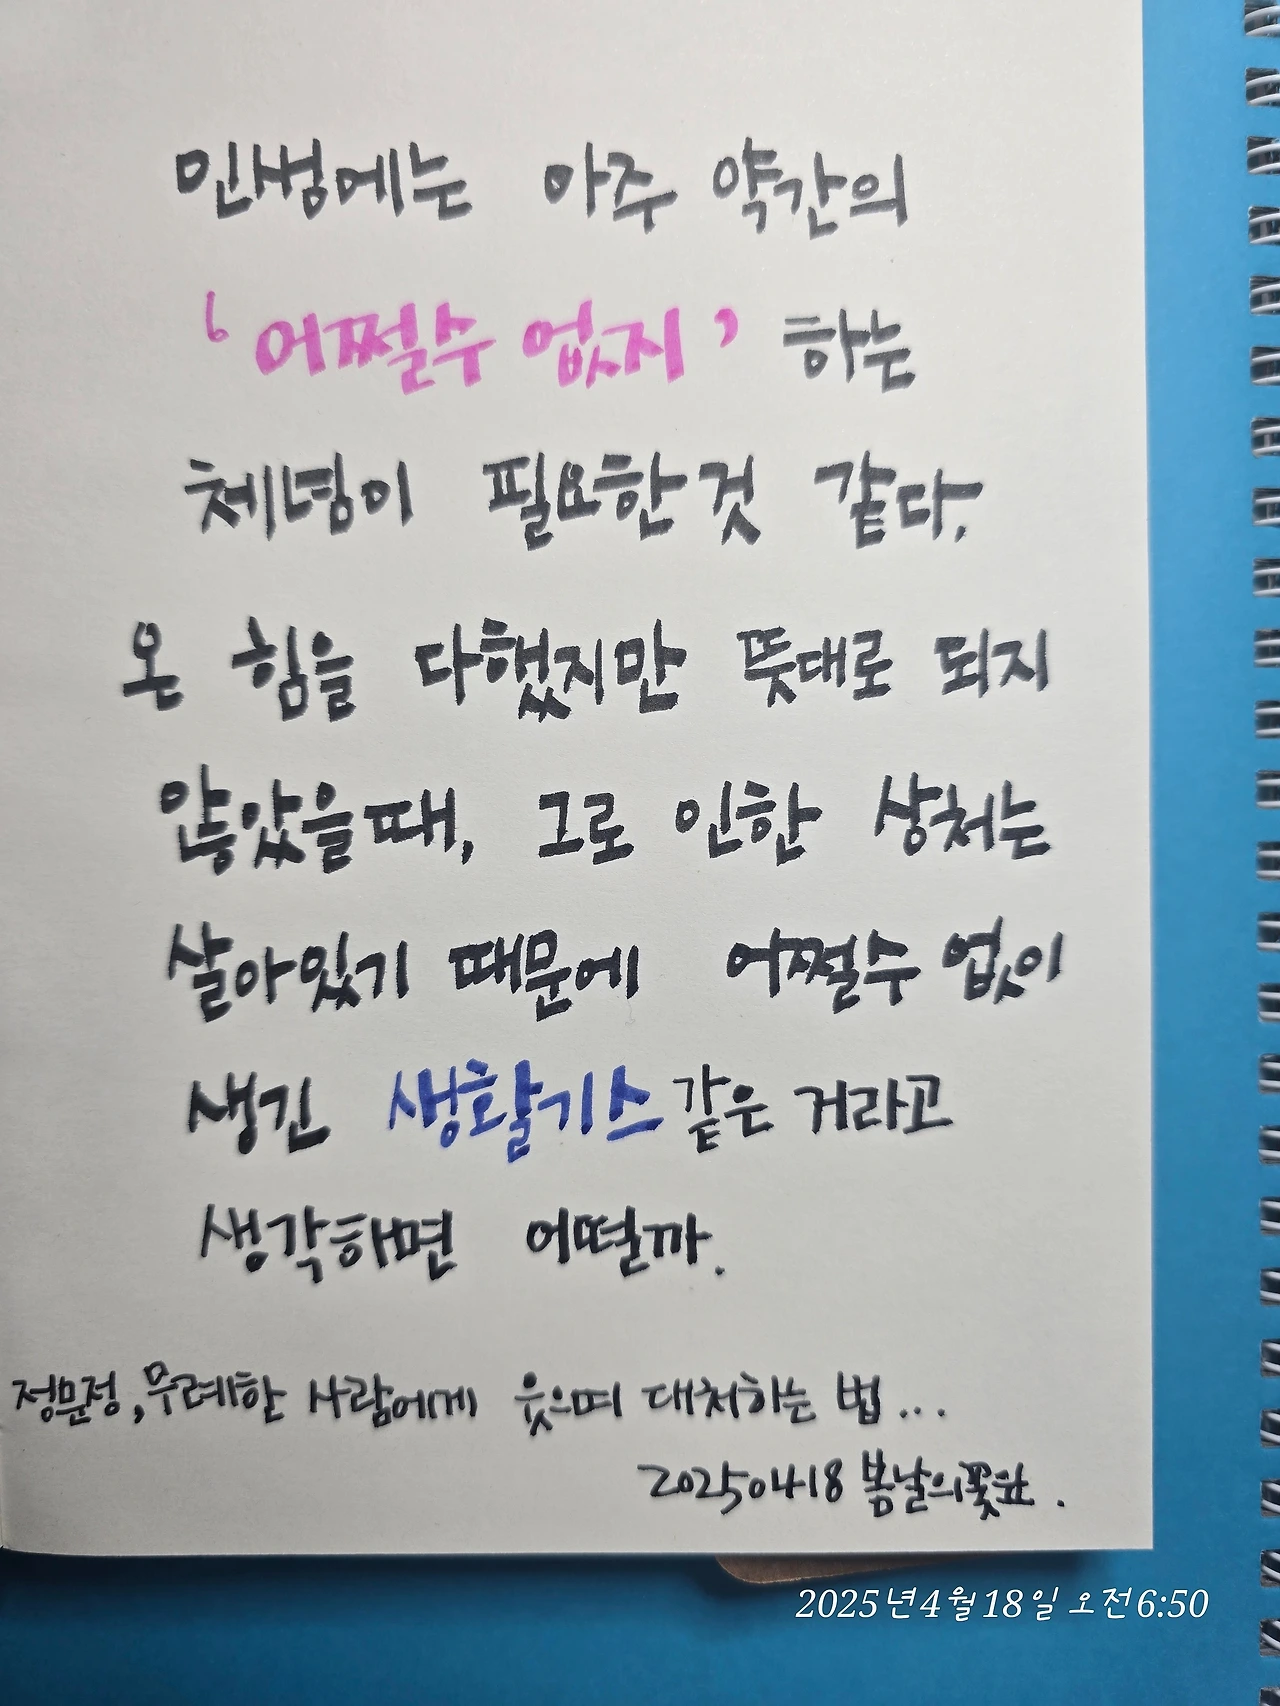 인생에는 아주 약간의
'어쩔수 없지' 하는
체념이 필요한 것 같다.
온 힘을 다했지만 뜻대로 되지
않았을때, 그로 인한 상처는
살아있기 때문에 어쩔수 없이
생긴 생활기스 같은 거라고
생각하면 어떨까.
정문정, 무례한 사람에게 웃으며 대처하는 법...
20250418 봄날의꽃
2025년 4월 18일 오전 6:50